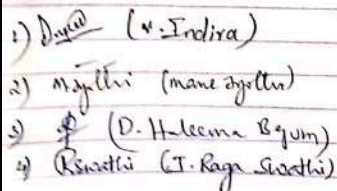 1) (N. Indira)
2) (mane Jyothi)
3) (D. Haleema Begum)
4) RSwathi (J. Raga Swathi)